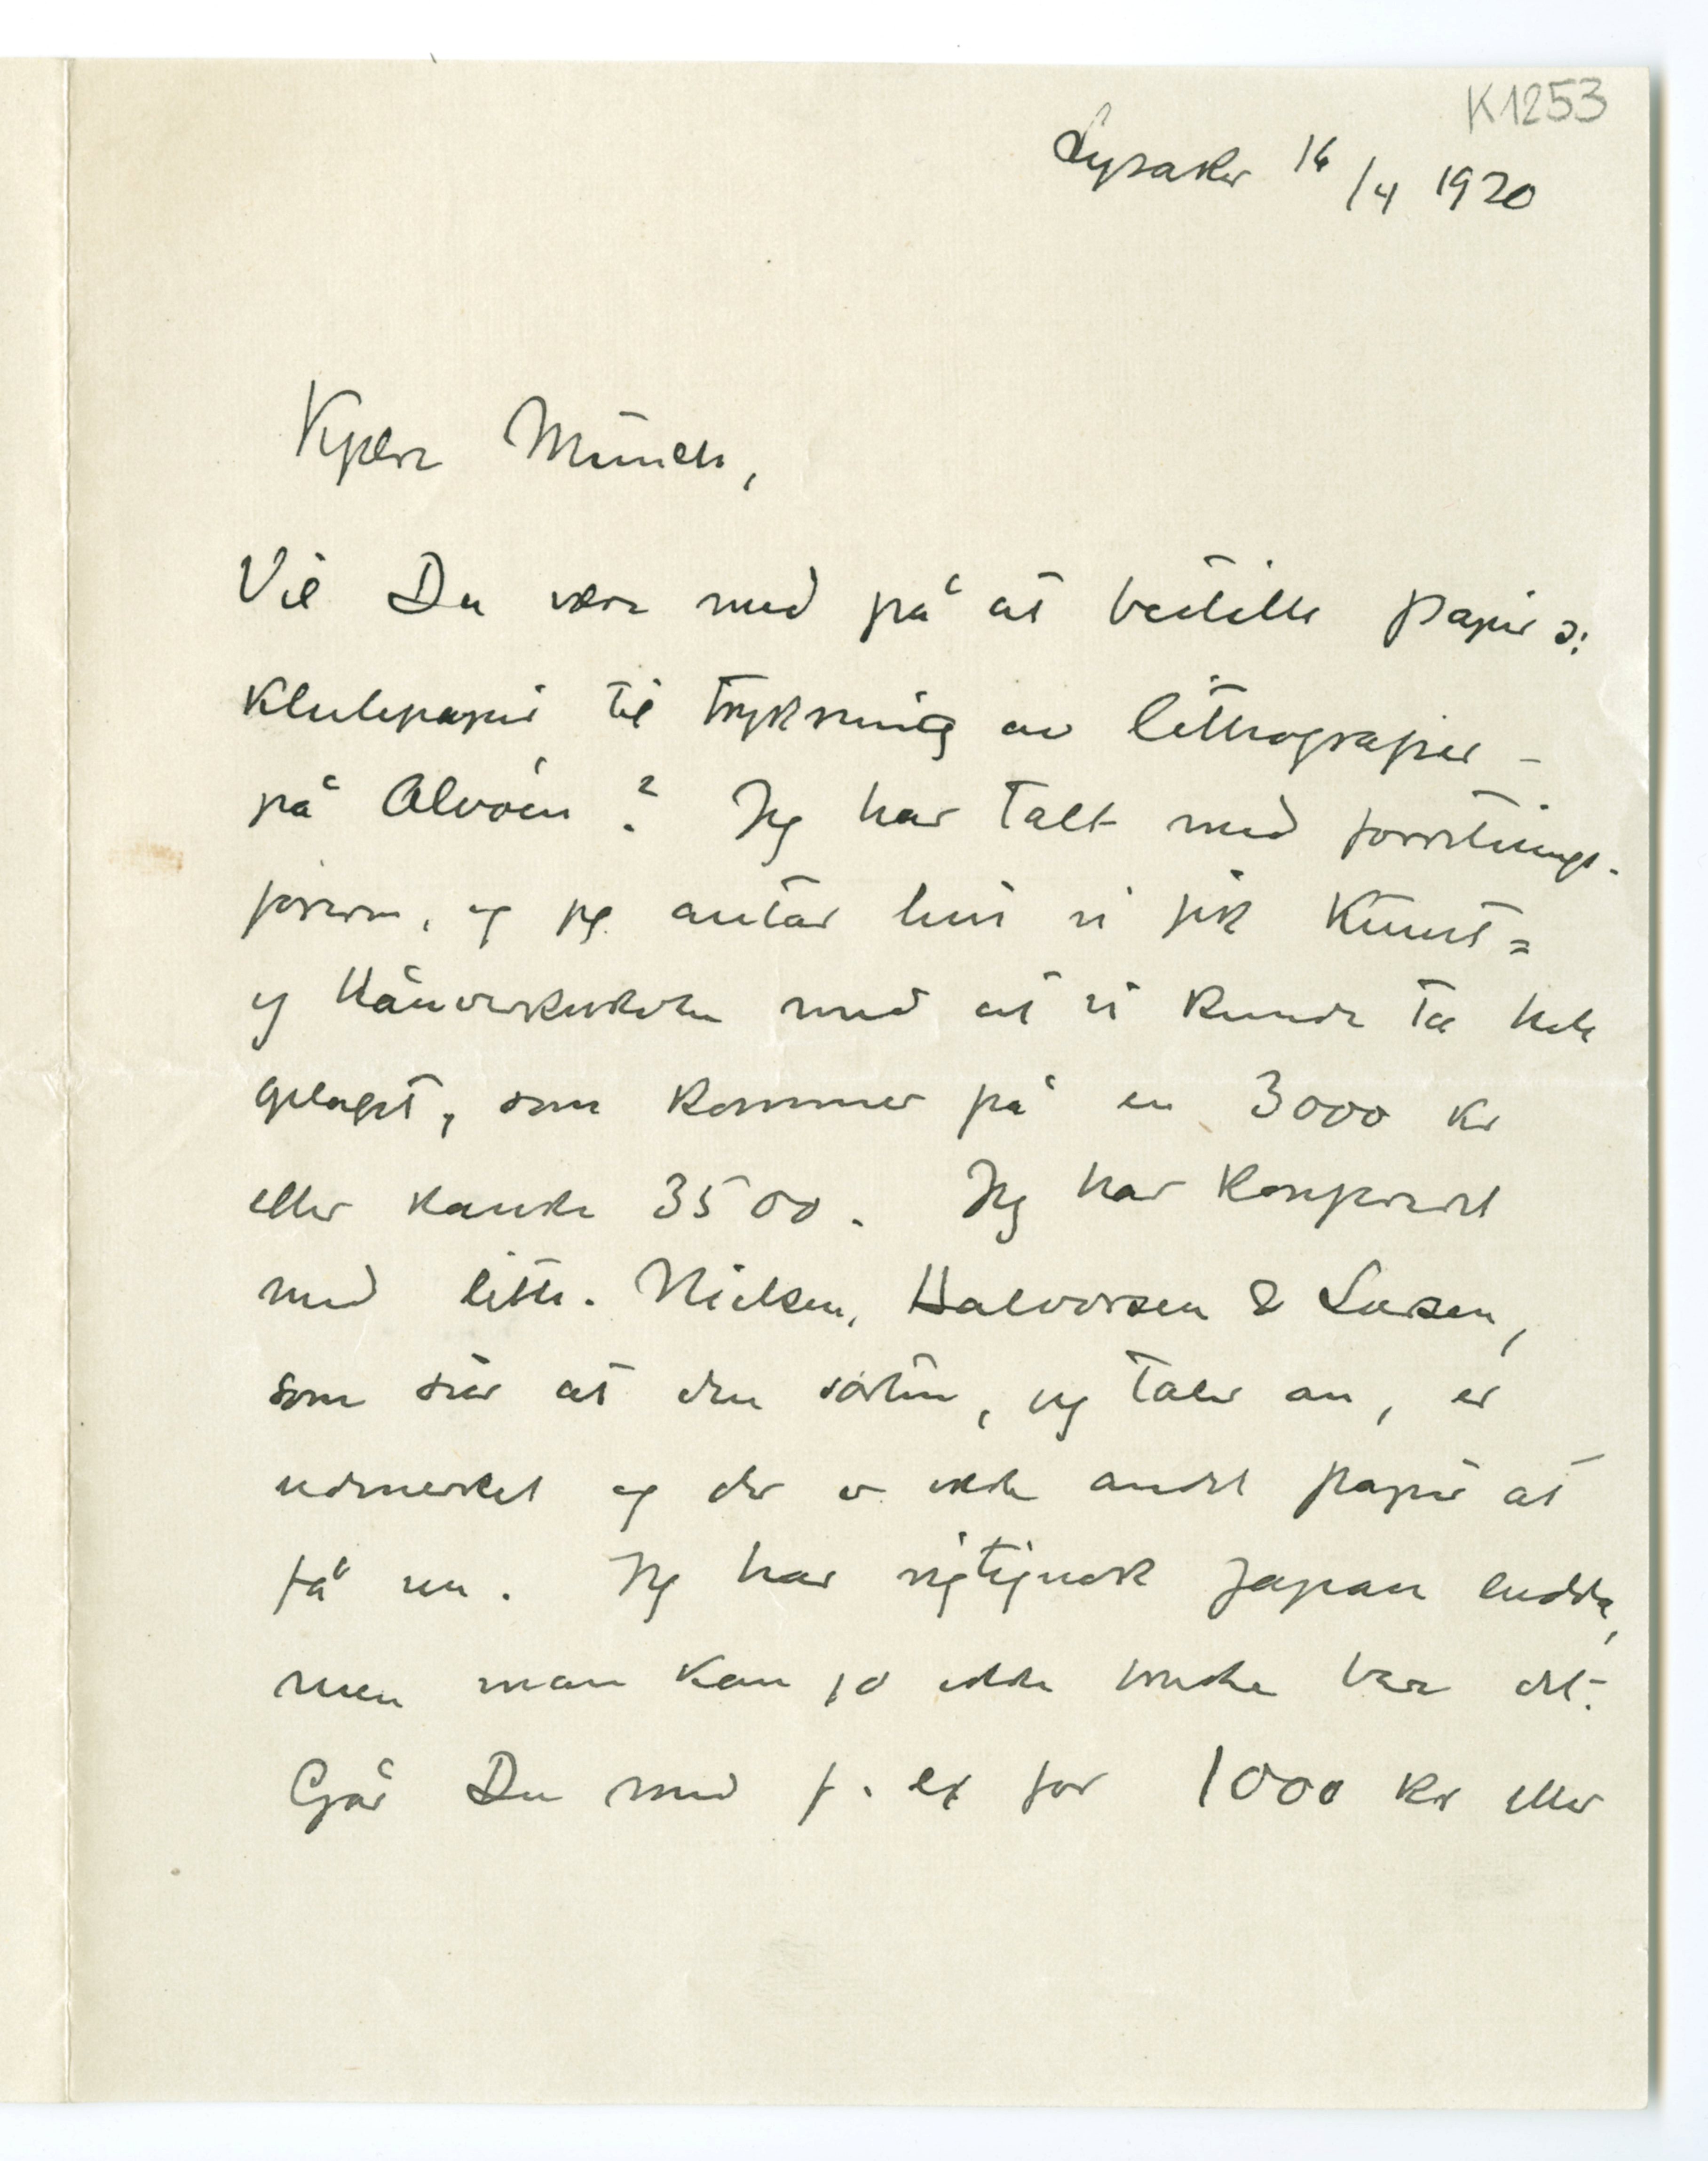 K1253
Lysaker 16/4 1920
Kjære Münch,
Vil Du være med på at bestille papir ɔ:
Klutepapir til trykning av litthografier –
på Alvøen? Jeg har talt med forretnings-
føreren, og jeg antar hvis vi fik Kunst=
og Håndverksskolen med at vi kunde ta hele
gelaget, som kommer på en 3000 kr
eller kanske 3500. Jeg har konfereret
med litth. Nielsen, Halvorsen & Larsen,
som sier at den sorten, jeg taler om, er
udmerket og der er ikke andet papir at
få nu. Jeg har rigtignok Japan endda,
men man kan jo ikke bruke bare det.
Går Du med f. ex for 1000 kr eller